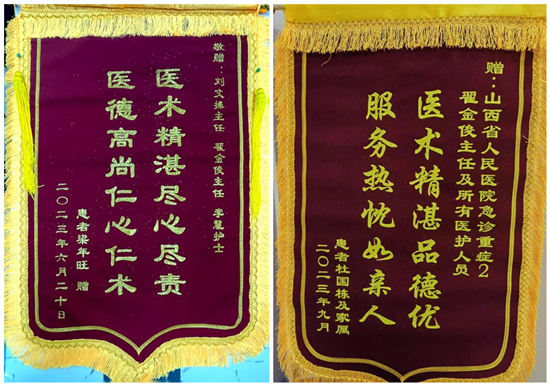 敬赠 刘文操主任 翟金俊主任 李慧护士
医术精湛尽心尽责
医德高尚仁心仁术
患者梁年旺 赠
二〇二三年六月二十日
赠：山西省人民医院急诊重症2
翟金俊主任及所有医护人员
医术精湛品德优
服务热忱如亲人
患者杜国栋及家属
二〇二三年九月